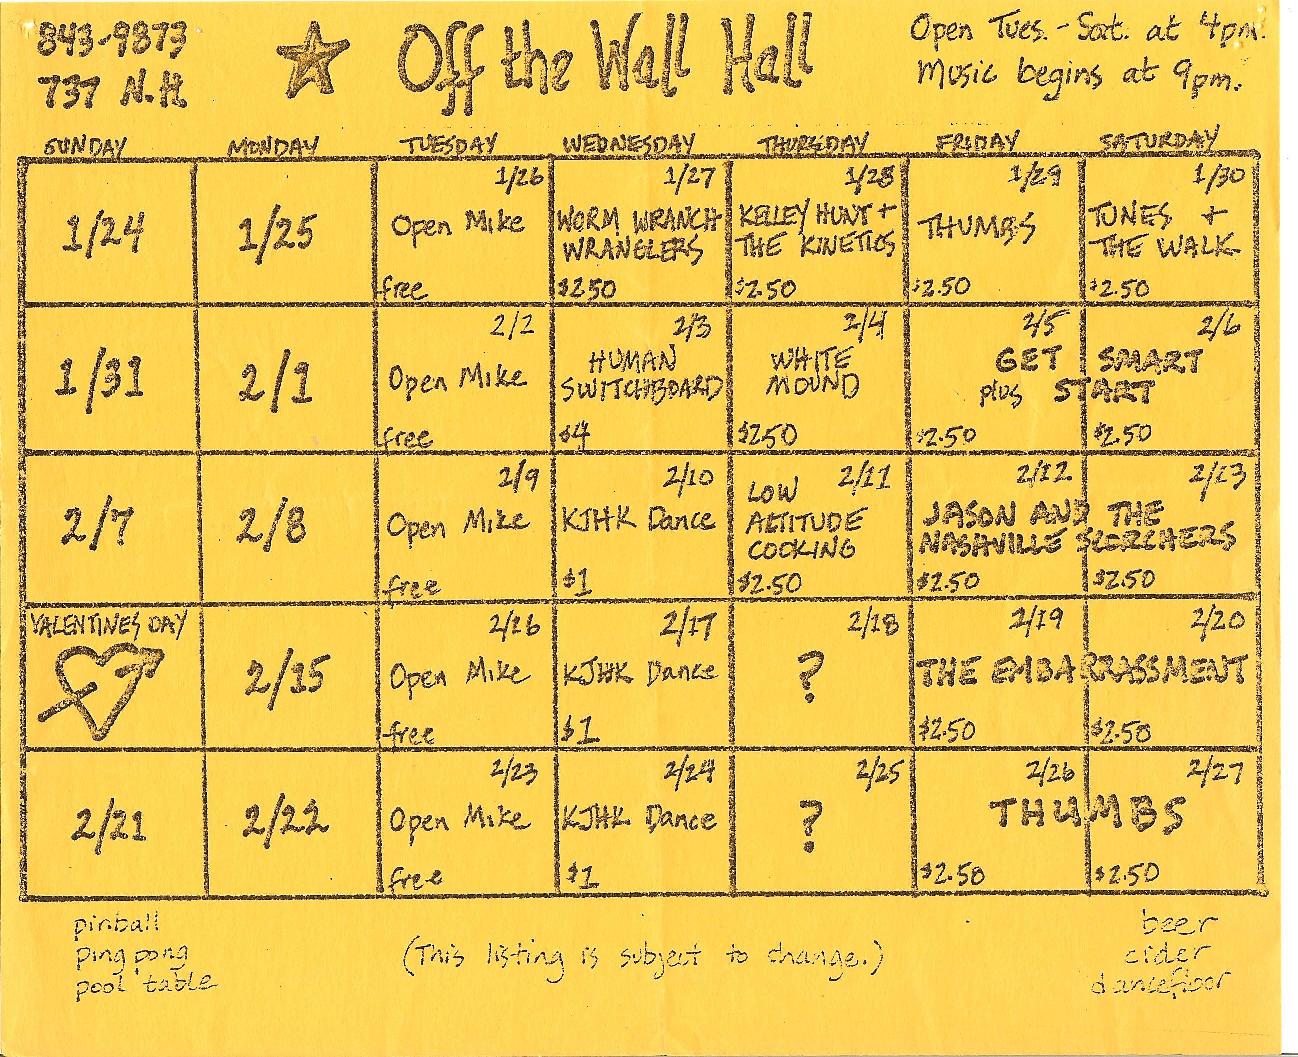 843-9873
737 N.H
Off the Wall Hall
Open Tues. - Sat. at 4pm.
Music begins at 9pm.
SUNDAY MONDAY TUESDAY WEDNESDAY THURSDAY FRIDAY SATURDAY
1/24
1/25
1/26
Open Mike
free
1/27
WORM WRANCH
WRANGLERS
$2.50
1/28
KELLEY HUNT +
THE KINETICS
$2.50
1/29
THUMBS
$2.50
1/30
TUNES +
THE WALK
$2.50
1/31
2/1
2/2
Open Mike
free
2/3
HUMAN
SWITCHBOARD
$4
2/4
WHITE
MOUND
$2.50
2/5 2/6
GET SMART
plus START
$2.50 $2.50
2/7
2/8
2/9
Open Mike
free
2/10
KJHK Dance
$1
2/11
LOW
ALTITUDE
COOKING
$2.50
2/12 2/13
JASON AND THE
NASHVILLE SCORCHERS
$2.50 $2.50
VALENTINES DAY
2/15
2/16
Open Mike
free
2/17
KJHK Dance
$1
2/18
?
2/19 2/20
THE EMBARRASSMENT
$2.50 $2.50
2/21
2/22
2/23
Open Mike
free
2/24
KJHK Dance
$1
2/25
?
2/26 2/27
THUMBS
$2.50 $2.50
pinball
ping pong
pool table
(This listing is subject to change.)
beer
cider
dancefloor